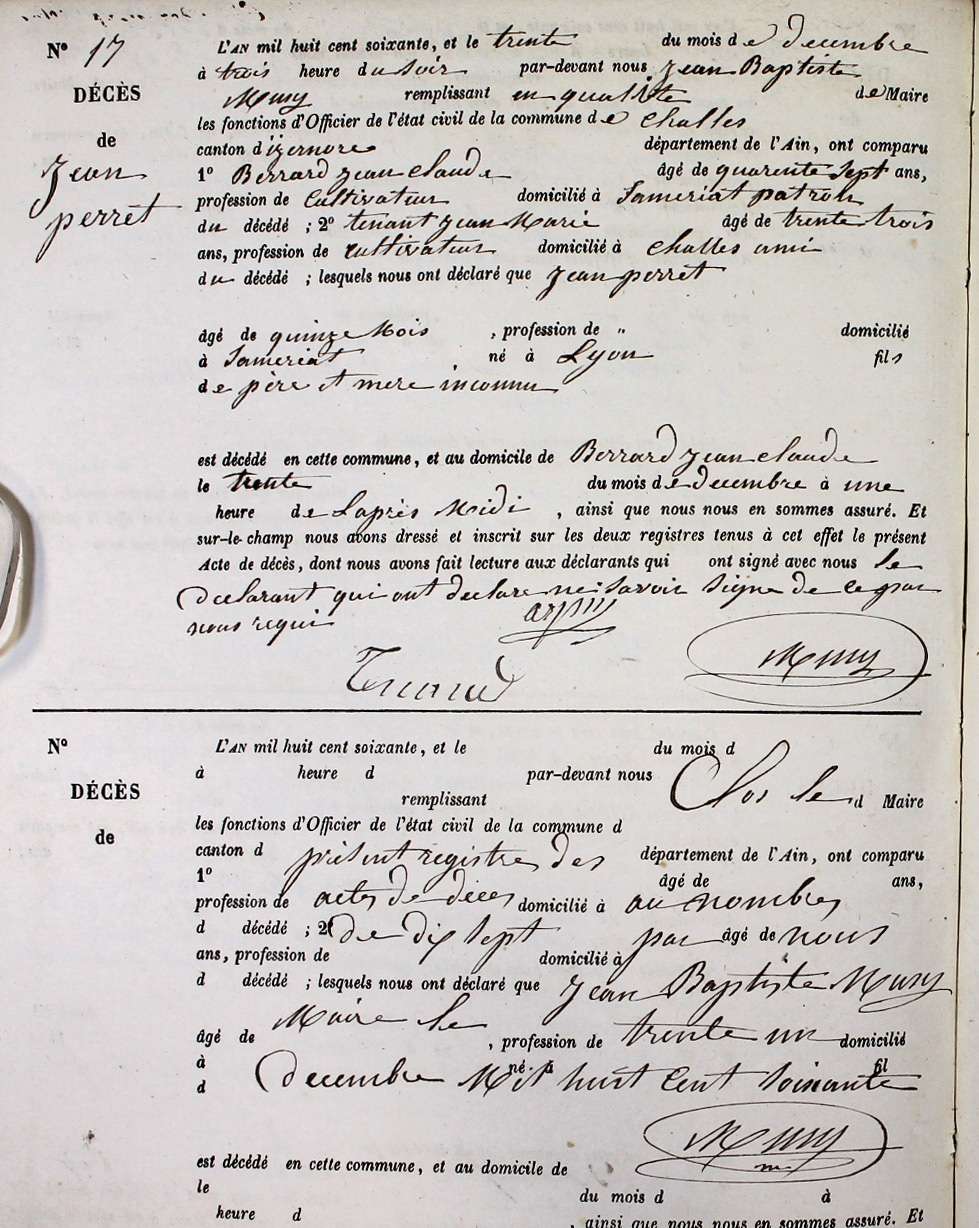 N° 17
DÉCÈS
de
Jean
perret
L'AN mil huit cent soixante, et le trente du mois de decembre
à trois heure du soir par-devant nous Jean Baptiste
Musy remplissant en qualité de Maire
les fonctions d'Officier de l'état civil de la commune de Challes
canton d'izernore département de l'Ain, ont comparu
1° Berrard Jean Claude âgé de quarente sept ans,
profession de Cultivateur domicilié à Sameriat patron
du décédé ; 2° tenant Jean Marie âgé de trente trois
ans, profession de cultivateur domicilié à Challes ami
du décédé ; lesquels nous ont déclaré que Jean perret
âgé de quinze Mois , profession de " domicilié
à Sameriat , né à Lyon fils
de père et mere inconnu
est décédé en cette commune, et au domicile de Berrard Jean Claude
le trente du mois de decembre à une
heure de Laprès Midi , ainsi que nous nous en sommes assuré. Et
sur-le-champ nous avons dressé et inscrit sur les deux registres tenus à cet effet le présent
Acte de décès, dont nous avons fait lecture aux déclarants qui ont signé avec nous Le
declarant qui ont declare ne savoir signe de ce par
nous requi
Musy
N°
DÉCÈS
de
L'AN mil huit cent soixante, et le du mois d
à heure d par-devant nous
remplissant Clos le d Maire
les fonctions d'Officier de l'état civil de la commune d
canton d présent registre des département de l'Ain, ont comparu
1° âgé de ans,
profession de actes de deces domicilié à au nombres
d décédé ; 2° de dix sept par âgé de nous
ans, profession de domicilié à
d décédé ; lesquels nous ont déclaré que Jean Baptiste Musy
Maire le
âgé de , profession de trente un domicilié
à né à fil
d decembre Mil huit Cent soixante
Musy
est décédé en cette commune, et au domicile de
le du mois d à
heure d , ainsi que nous nous en sommes assuré. Et